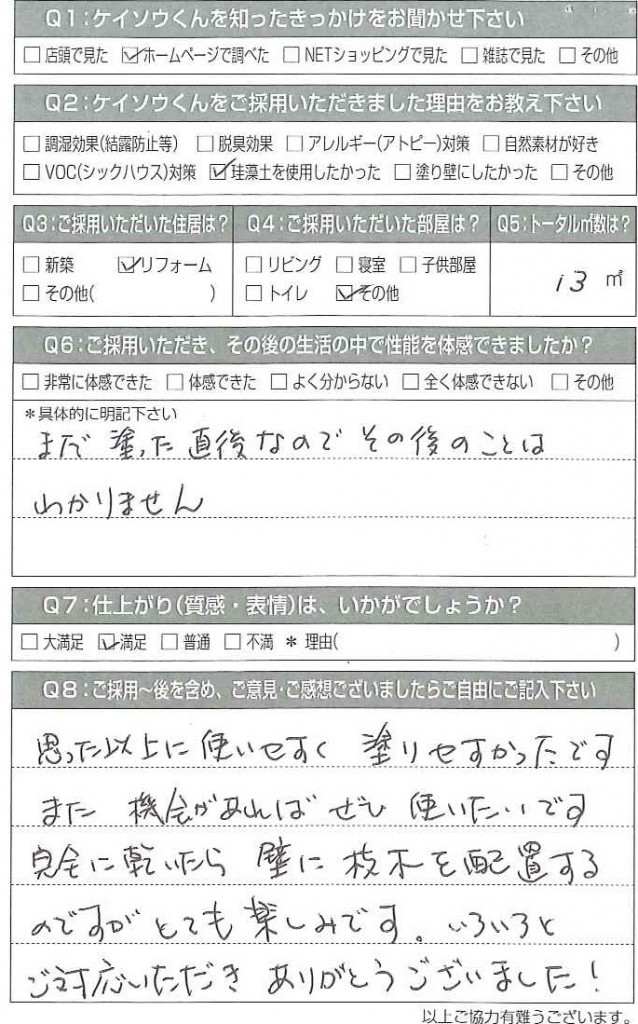 Q1:ケイソウくんを知ったきっかけをお聞かせ下さい
□店頭で見た ☑ホームページで調べた □NETショッピングで見た □雑誌で見た □その他
Q2:ケイソウくんをご採用いただきました理由をお教え下さい
□調湿効果(結露防止等) □脱臭効果 □アレルギー(アトピー)対策 □自然素材が好き
□VOC(シックハウス)対策 ☑珪藻土を使用したかった □塗り壁にしたかった □その他
Q3:ご採用いただいた住居は?
□新築 ☑リフォーム
□その他( )
Q4:ご採用いただいた部屋は?
□リビング □寝室 □子供部屋
□トイレ ☑その他
Q5:トータル㎡数は?
13 ㎡
Q6:ご採用いただき、その後の生活の中で性能を体感できましたか?
□非常に体感できた □体感できた □よく分からない □全く体感できない □その他
*具体的に明記下さい
まだ 塗った 直後なので その後のことは
わかりません
Q7:仕上がり(質感・表情)は、いかがでしょうか?
□大満足 ☑満足 □普通 □不満 *理由( )
Q8:ご採用〜後を含め、ご意見・ご感想ございましたらご自由にご記入下さい
思った以上に 使いやすく 塗りやすかったです
また 機会があれば ぜひ 使いたいです
完全に乾いたら 壁に 枝木を配置する
のですが とても 楽しみです。いろいろと
ご対応いただき ありがとうございました!
以上ご協力有難うございます。